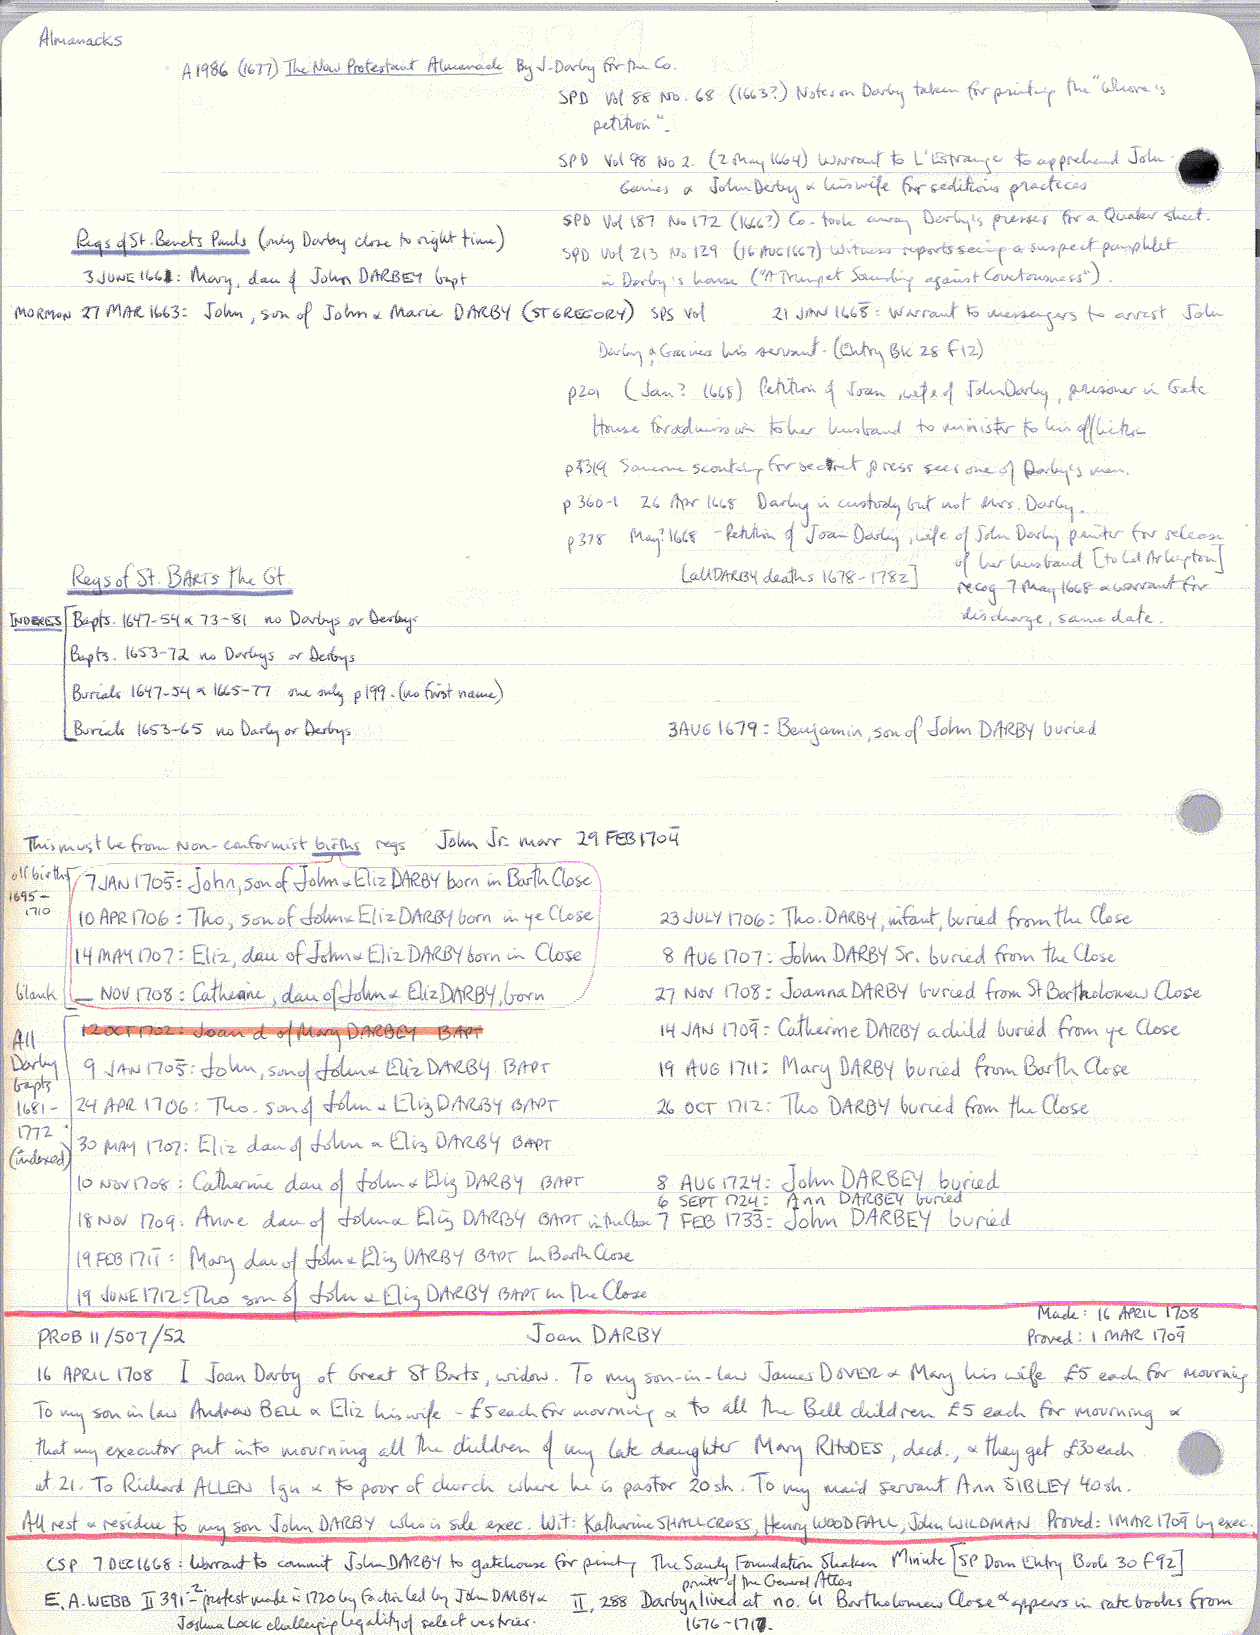 Almanacks
A1986 (1677) The New Protestant Almanack By J. Darby for the Co.
SPD Vol 88 No. 68 (1663?) Notes on Darby taken for printing the "Whore's
petition".
SPD Vol 98 No 2. (2 May 1664) Warrant to L'Estrange to apprehend John
Gaines & John Derby & his wife for seditious practices
SPD Vol 187 No 172 (1666?) Co. took away Darby's presses for a Quaker sheet.
SPD Vol 213 No 129 (16 AUG 1667) Witness reports seeing a suspect pamphlet
in Darby's house ("A Trumpet Sounding against Covetousness").
Regs of St. Benets Pauls (only Darby close to right time)
3 JUNE 1661: Mary, dau of John DARBEY bapt
MORMON 27 MAR 1663: John, son of John & Marie DARBY (ST GREGORY)
SPS Vol 21 JAN 1668: Warrant to messengers to arrest John
Darby & Gaines his servant. (Entry Bk 28 f12)
p201 (Jan? 1668) Petition of Joan, wife of John Darby, prisoner in Gate
House for admission to her husband to minister to his affliction
p319 Someone scouting for secret press sees one of Darby's men.
p360-1 26 Apr 1668 Darby in custody but not Mrs. Darby.
p378 May? 1668 - Petition of Joan Darby, wife of John Darby printer for release
of her husband [to Ld Arlington]
recog 7 May 1668 & warrant for
discharge, same date.
Regs of St. BARTS the Gt
[all DARBY deaths 1678-1782]
INDEXES
Bapts. 1647-54 & 73-81 no Darbys or Derbys
Bapts. 1653-72 no Darbys or Derbys
Burials 1647-54 & 1665-77 one only p199. (no first name)
Burials 1653-65 no Darby or Derbys
3 AUG 1679: Benjamin, son of John DARBY buried
This must be from Non-conformist births regs John Jr. marr 29 FEB 1704
all births
1695-
1710
7 JAN 1705: John, son of John & Eliz DARBY born in Barth Close
10 APR 1706: Tho, son of John & Eliz DARBY born in ye Close
23 JULY 1706: Tho. DARBY, infant, buried from the Close
14 MAY 1707: Eliz, dau of John & Eliz DARBY born in Close
8 AUG 1707: John DARBY Sr. buried from the Close
blank
__ NOV 1708: Catherine, dau of John & Eliz DARBY, born
27 NOV 1708: Joanna DARBY buried from St Bartholomew Close
All
Darby
bapts
1681-
1772
(indexed)
12 OCT 1702: Joan d of Mary DARBEY BAPT
14 JAN 1709: Catherine DARBY a child buried from ye Close
9 JAN 1705: John, son of John & Eliz DARBY BAPT
19 AUG 1711: Mary DARBY buried from Barth Close
24 APR 1706: Tho. son of John & Eliz DARBY BAPT
26 OCT 1712: Tho DARBY buried from the Close
30 MAY 1707: Eliz dau of John & Eliz DARBY BAPT
10 NOV 1708: Catherine dau of John & Eliz DARBY BAPT
8 AUG 1724: John DARBEY buried
6 SEPT 1724: Ann DARBEY buried
18 NOV 1709: Anne dau of John & Eliz DARBY BAPT in the Close
7 FEB 1733: John DARBEY buried
19 FEB 1711: Mary dau of John & Eliz DARBY BAPT in Barth Close
19 JUNE 1712: Tho son of John & Eliz DARBY BAPT in the Close
Made: 16 APRIL 1708
PROB 11/507/52 Joan DARBY Proved: 1 MAR 1709
16 APRIL 1708 I Joan Darby of Great St Barts, widow. To my son-in-law James DOVER & Mary his wife £5 each for mourning
To my son in law Andrew BELL & Eliz his wife - £5 each for mourning & to all the Bell children £5 each for mourning &
that my executor put into mourning all the children of my late daughter Mary RHODES, decd., & they get £30 each
at 21. To Richard ALLEN 1gn & to poor of church where he is pastor 20sh. To my maid servant Ann SIBLEY 40sh.
All rest & residue to my son John DARBY who is sole exec. Wit: Katharine SHALLCROSS, Henry WOODFALL, John WILDMAN. Proved: 1 MAR 1709 by exec.
CSP 7 DEC 1668: Warrant to commit John DARBY to gatehouse for printing The Sandy Foundation Shaken Minute [SP Dom Entry Book 30 f92]
E.A. WEBB II 391-2 protest made in 1720 by faction led by John DARBY &
Joshua Lock challenging legality of select vestries.
II, 288 Darby, printer of the General Atlas lived at no. 61 Bartholomew Close & appears in rate books from
1676-1717.